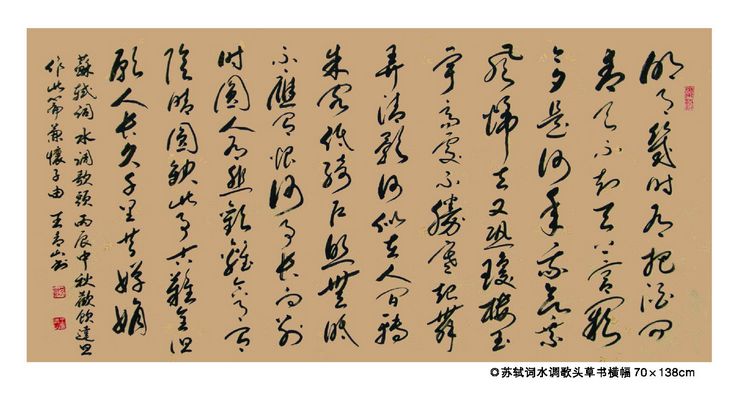 明月幾时有把酒问
青天不知天上宫阙
今夕是何年我欲乘
风归去又恐瓊楼玉
宇高处不勝寒起舞
弄清影何似在人间轉
朱阁低绮户照無眠
不應有恨何事长向别
时圆人有悲歡離合月有
陰晴圆缺此事古難全但
願人长久千里共嬋娟
蘇軾词水调歌頭丙辰中秋歡飲達旦
作此篇兼懷子由 王青山书
◎苏轼词水调歌头草书横幅 70×138cm